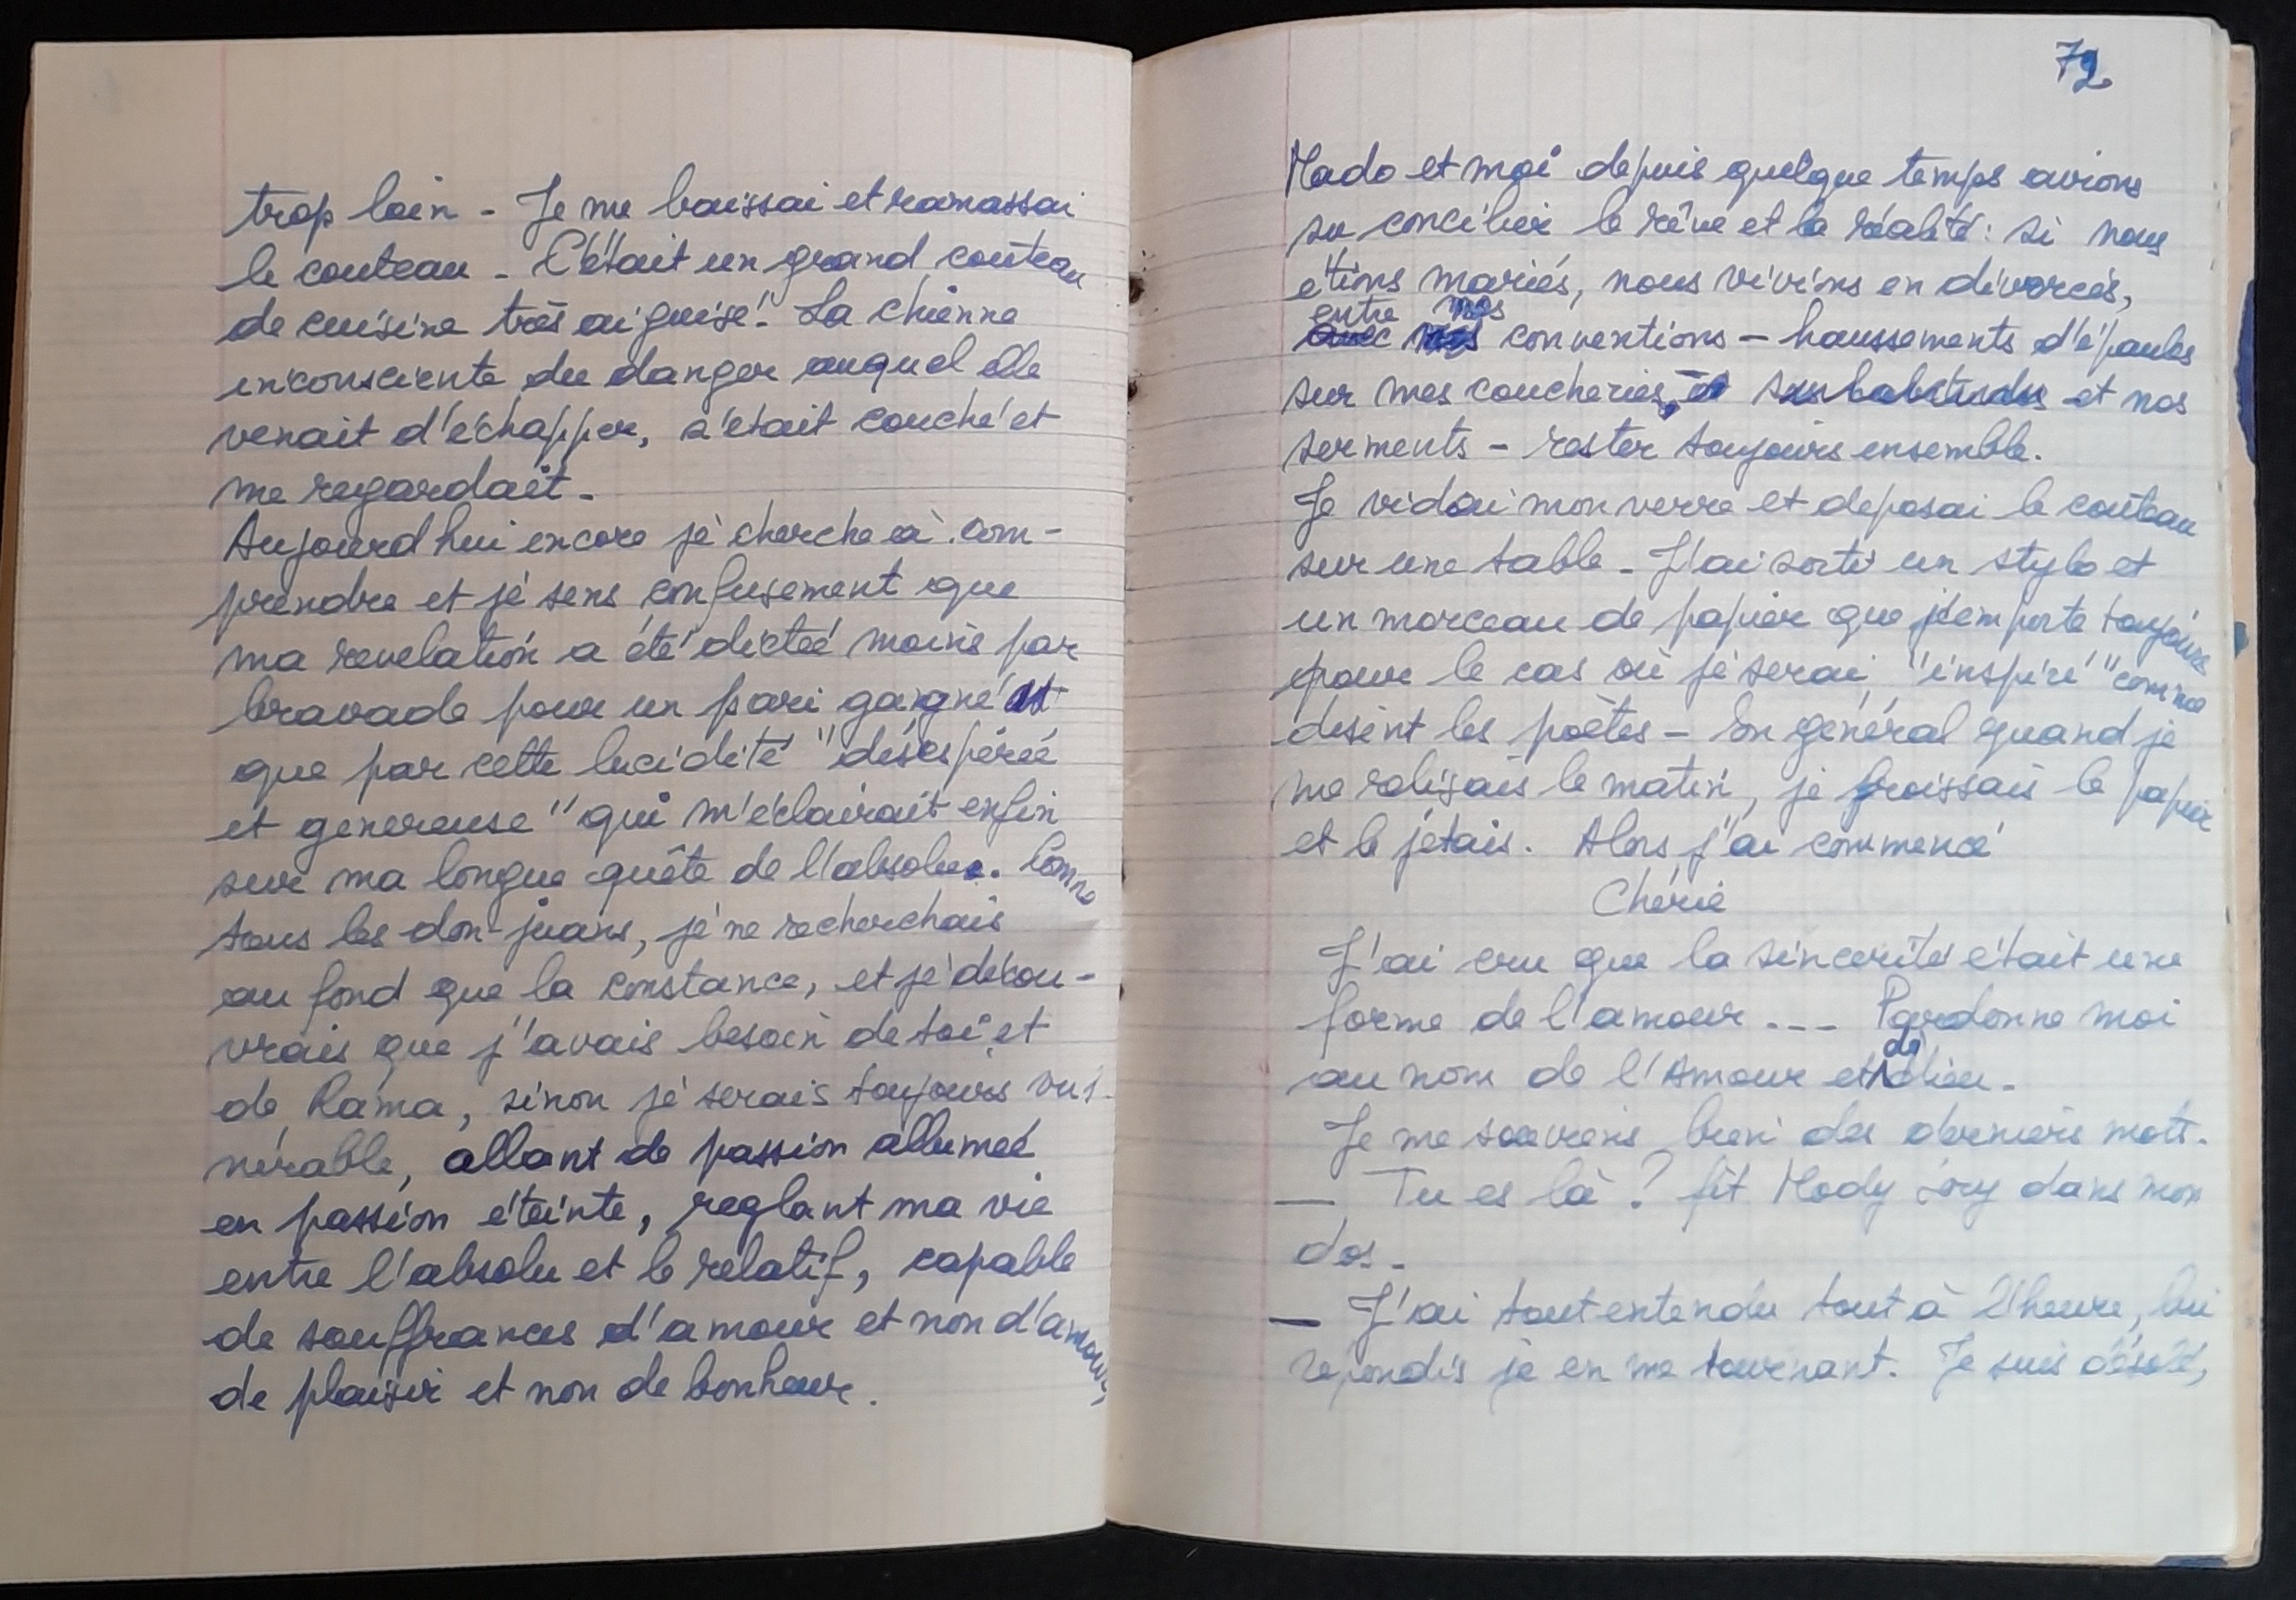 trop loin - Je me baissai et ramassai
le couteau - C'était un grand couteau
de cuisine très aiguisé. La chienne
inconsciente du danger auquel elle
venait d'échapper, s'était couché et
me regardait -
Aujourd'hui encore je cherche à com-
prendre et je sens confusement que
ma revelation a été dictée moins par
bravade pour un pari gagné
que par cette lucidité "désespérée
et genereuse" qui m'éclairait enfin
sur ma longue quête de l'absolu. Comme
tous les don-juans, je ne recherchais
au fond que la constance, et je décou-
vrais que j'avais besoin de toi et
de Rama, sinon je serais toujours vul-
nérable, allant de passion allumée
en passion éteinte, reglant ma vie
entre l'absolu et le relatif, capable
de souffrances d'amour et non d'amour,
de plaisir et non de bonheur.
72
Mado et moi depuis quelque temps avions
su concilier le rêve et la réalité : si nous
étions mariés, nous vivions en divorcés,
entre nos
avec conventions - haussements d'épaules
sur mes coucheries, ses habitudes et nos
serments - rester toujours ensemble.
Je vidai mon verre et deposai le couteau
sur une table - J'ai sorti un stylo et
un morceau de papier que j'emporte toujours
pour le cas où je serai "inspiré" comme
disent les poètes - En général quand je
me relisais le matin, je froissais le papier
et le jetais. Alors j'ai commencé
Chérie
J'ai cru que la sincerité était une
forme de l'amour --- Pardonne moi
au nom de l'Amour et de dieu -
Je me souviens bien des derniers mots.
— Tu es là ? fit Mady dans mon
dos -
— J'ai tout entendu tout à l'heure, lui
repondis je en me tournant. Je suis désolé,